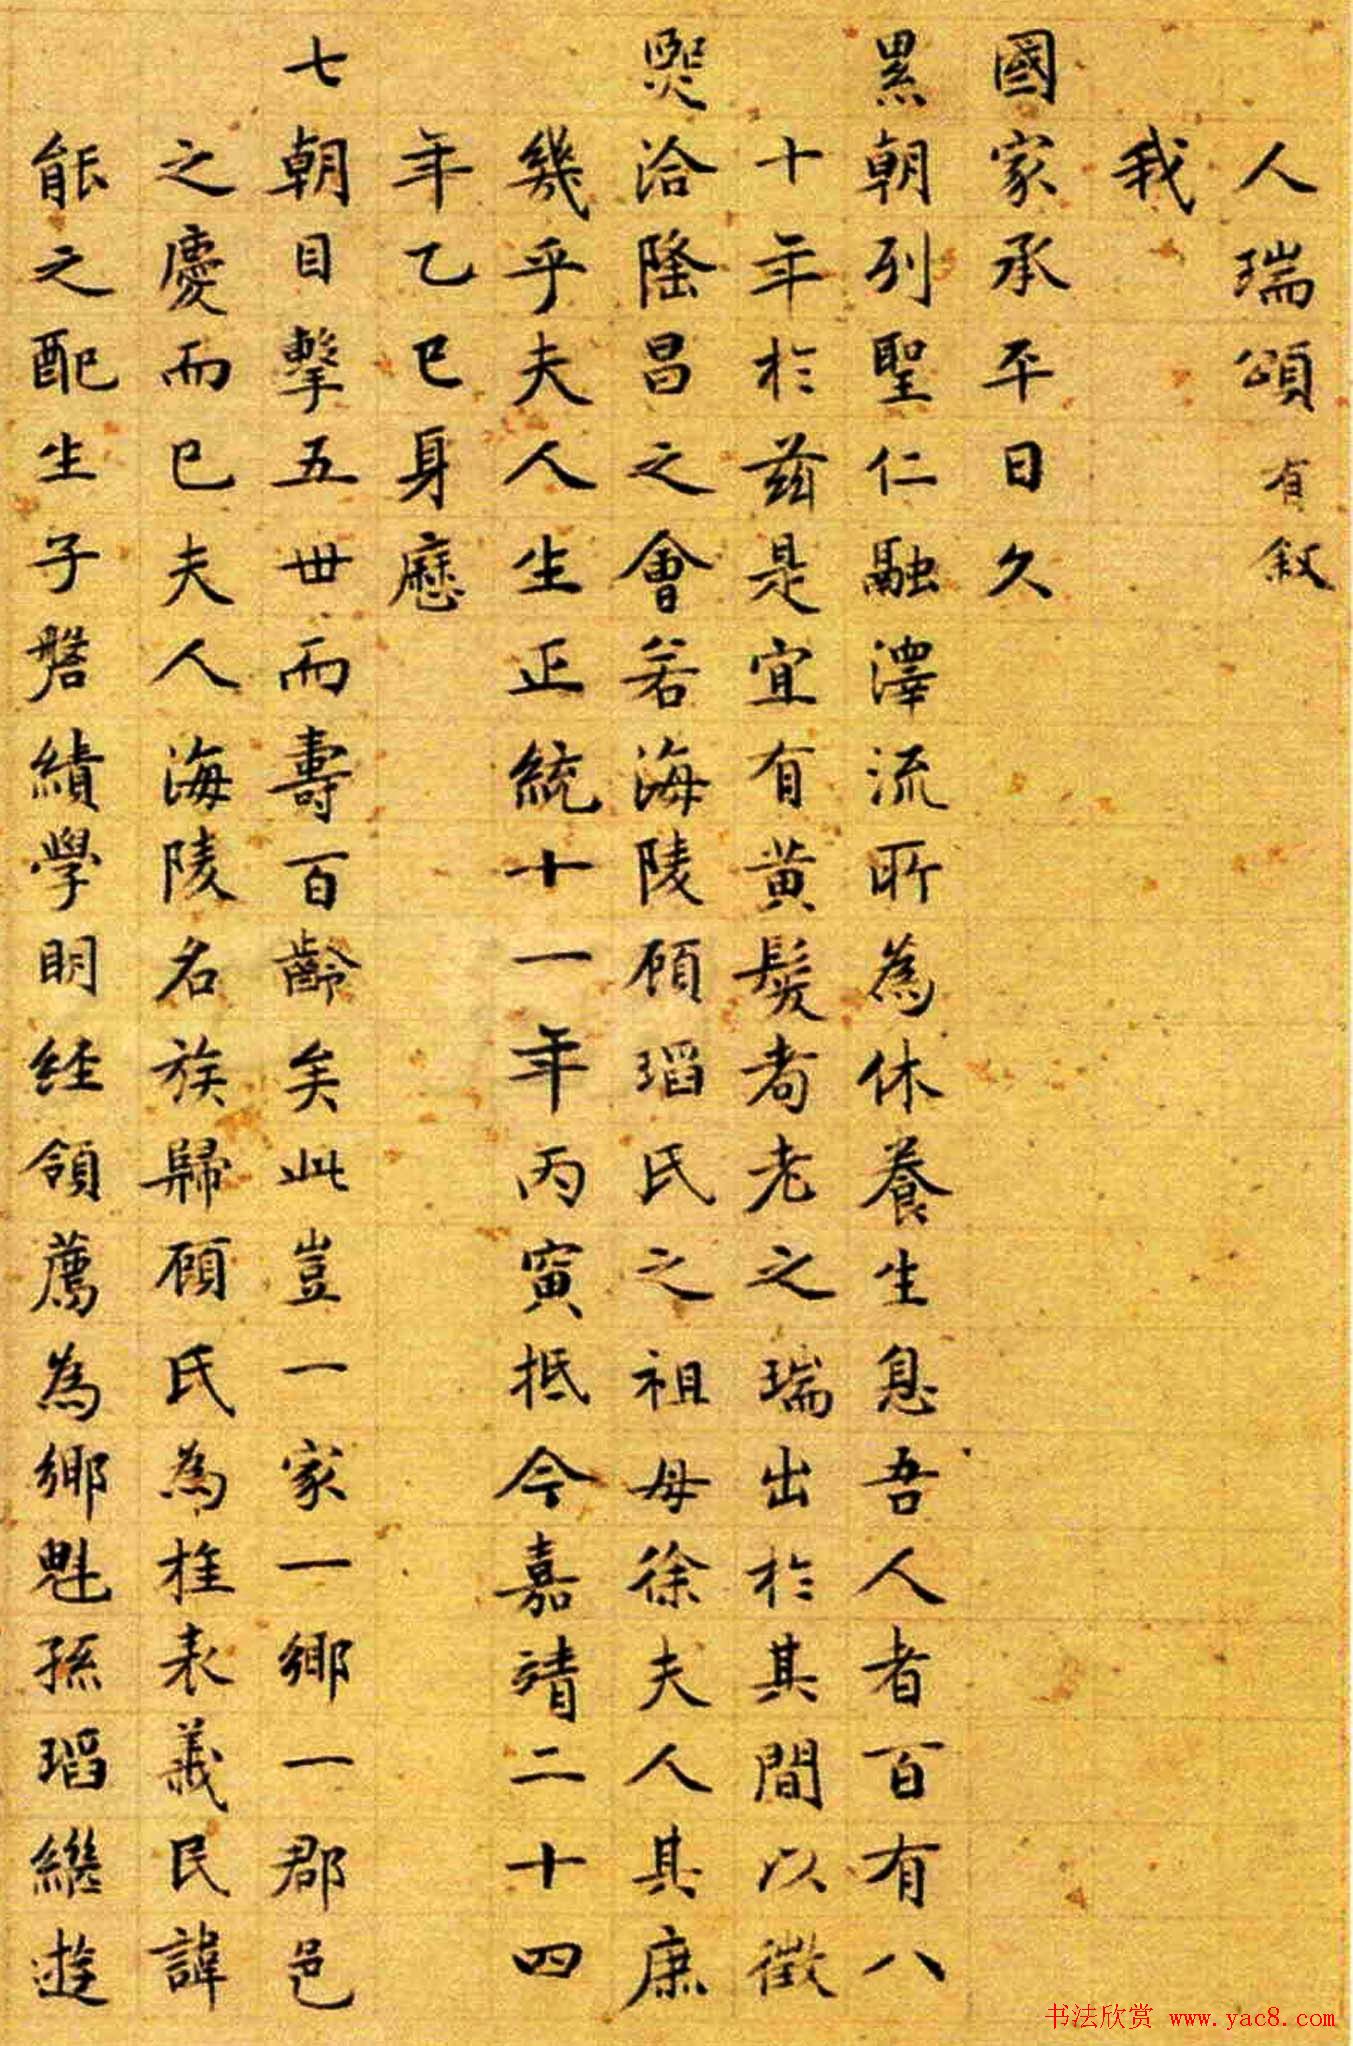 人瑞頌有敘
我
國家承平日久
累朝列聖仁融澤流所為休養生息吾人者百有八
十年於茲是宜有黃髮耇老之瑞出於其間以徵
熙洽隆昌之會若海陵顧瑫氏之祖母徐夫人其庶
幾乎夫人生正統十一年丙寅抵今嘉靖二十四
年乙巳身歷
七朝目擊五世而壽百齡矣此豈一家一鄉一郡邑
之慶而已夫人海陵名族歸顧氏為旌表義民諱
能之配生子磐績學明經領薦為鄉魁孫瑫繼遊
书法欣赏 www.yac8.com